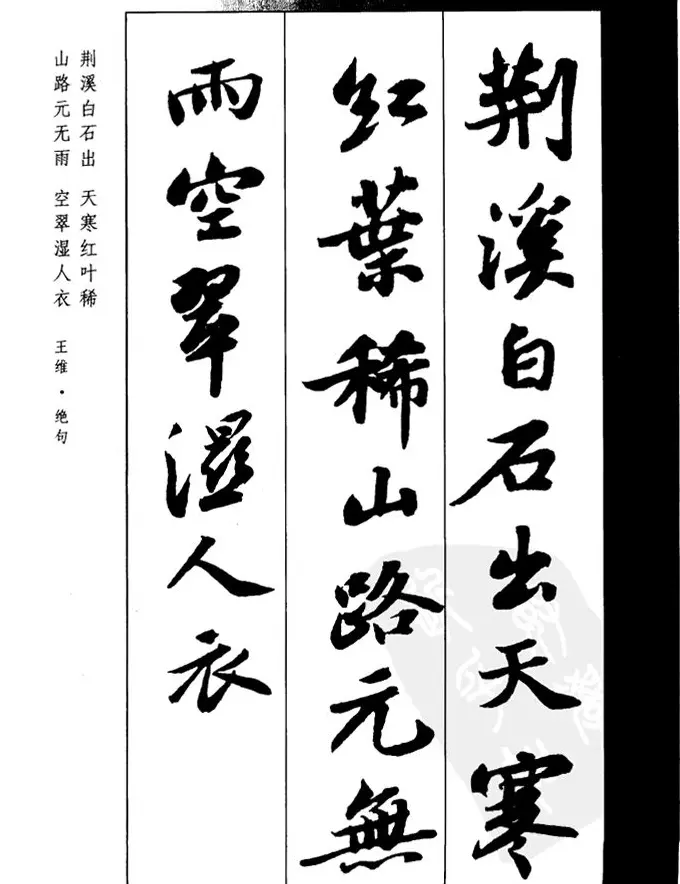 荆溪白石出天寒
红葉稀山路元無
雨空翠濕人衣
荆溪白石出 天寒红叶稀
山路元无雨 空翠湿人衣 王维·绝句